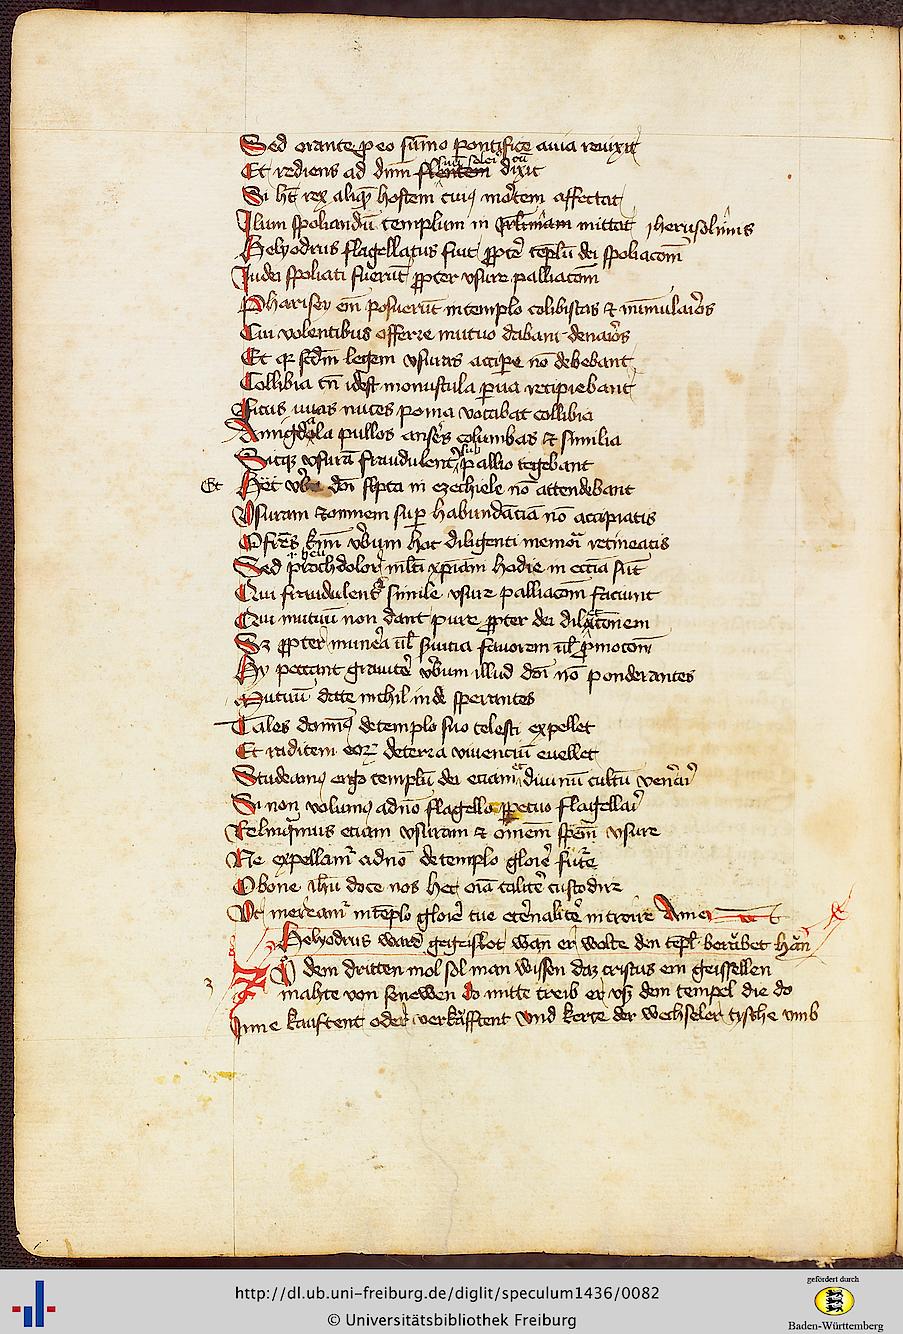 Sed orante p eo sūmo pontifice aīa reuixit
Et rediens ad dnm̄ suū seleucū dixit
Si ht̄ rex aliqē hostem cuiꝯ mortem affectat
Ilum spoliandū templum in mittat iherusolimis
Helyodrus flagellatus fuit ꝓpter tēplū dei spoliacōm
Iudei spoliati fuerūt ꝓpter vsure palliacōm
Pharisey em̄ posuerūt in templo colibistas & nūmularios
Qui volentibus offerre mutuo dabant denarios
Et qꝛ scdm̄ legem vsuras accipe nō debebant
Collibia tn̄ idest munuscula parua recipiebant
Ficus vuas nuces poma vocabat collibia
Amigdala pullos anseres columbas & similia
Sicqꝫ vsurā fraudulenter sub pallio tegebant
Et Hec vba dm̄ scpta in ezechiele nō attendebant
Vsuram & omnem sup habundāciā nō accipiatis
O frēs kmī vbum hoc diligenti memoria retineatis
Sed heu proch dolor mlti xpiām hodie in ecciā sūt
Qui fraudulent simile vsure palliacōm faciunt
Qui mutuū non dant pure ꝓpter dei dilectōnem
Sꝫ ꝓpter munera ul̄ suicia fauorem ul̄ pmocōm
Hy peccant grauiter vbum illud dm̄ nō ponderantes
Mutuū date nichil inde sperantes
Tales domīꝯ de templo suo celesti expellet
Et radicem eoꝝ de terra viuenciū euellet
Studeamꝯ ergo templū dei eciam et diuinū cultū venerari
Si non volumꝯ a dno flagello ꝑpetuo flagellari
Relinquamus eciam vsuram & omēm spēm vsure
Ne expellamur a dno de templo glorie future
O bone ihū doce nos hec oīa taliter custodire
Vt mereamur in tēplo glorie tue eternaliter introire Amen
Helyodrus ward gegeislot wan er wolte den tēpl berǒbet hān
3 Zů dem dritten mol sol man wissen daz cristus ein geissellen
mahte von senewen do mitte treib er vß dem tempel die do
Inne kauftent oder verkǎfftent vnd kerte der wechseler tysche vmb
http://dl.ub.uni-freiburg.de/diglit/speculum1436/0082
© Universitätsbibliothek Freiburg
gefördert durch
Baden-Württemberg